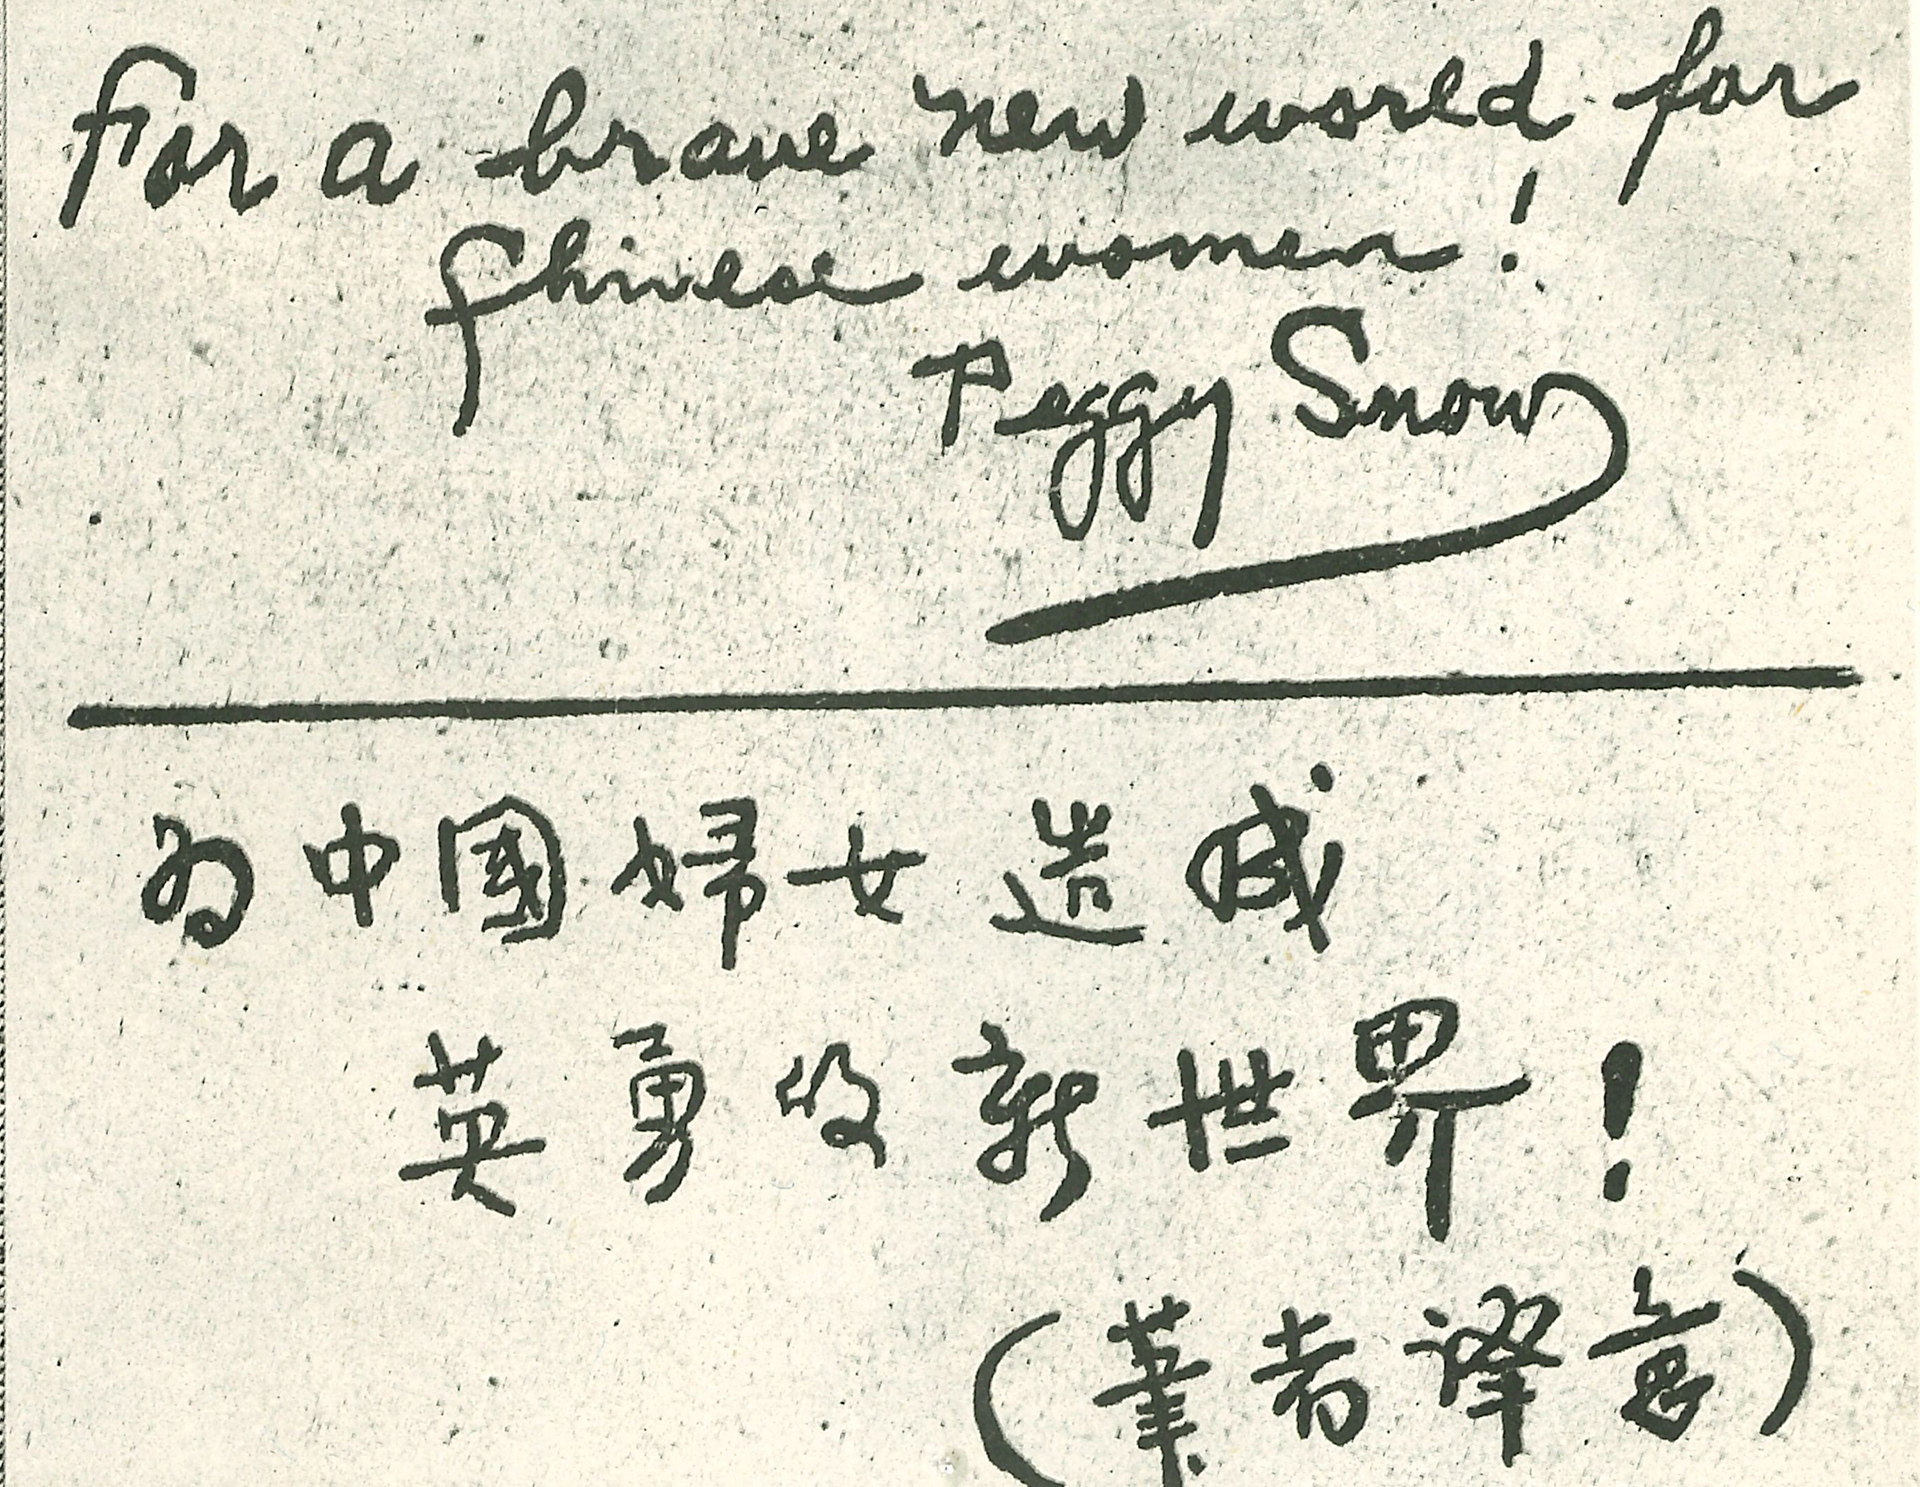 For a brave new world for
Chinese women!
Peggy Snow
为中國婦女造成
英勇的新世界!
(筆者譯意)